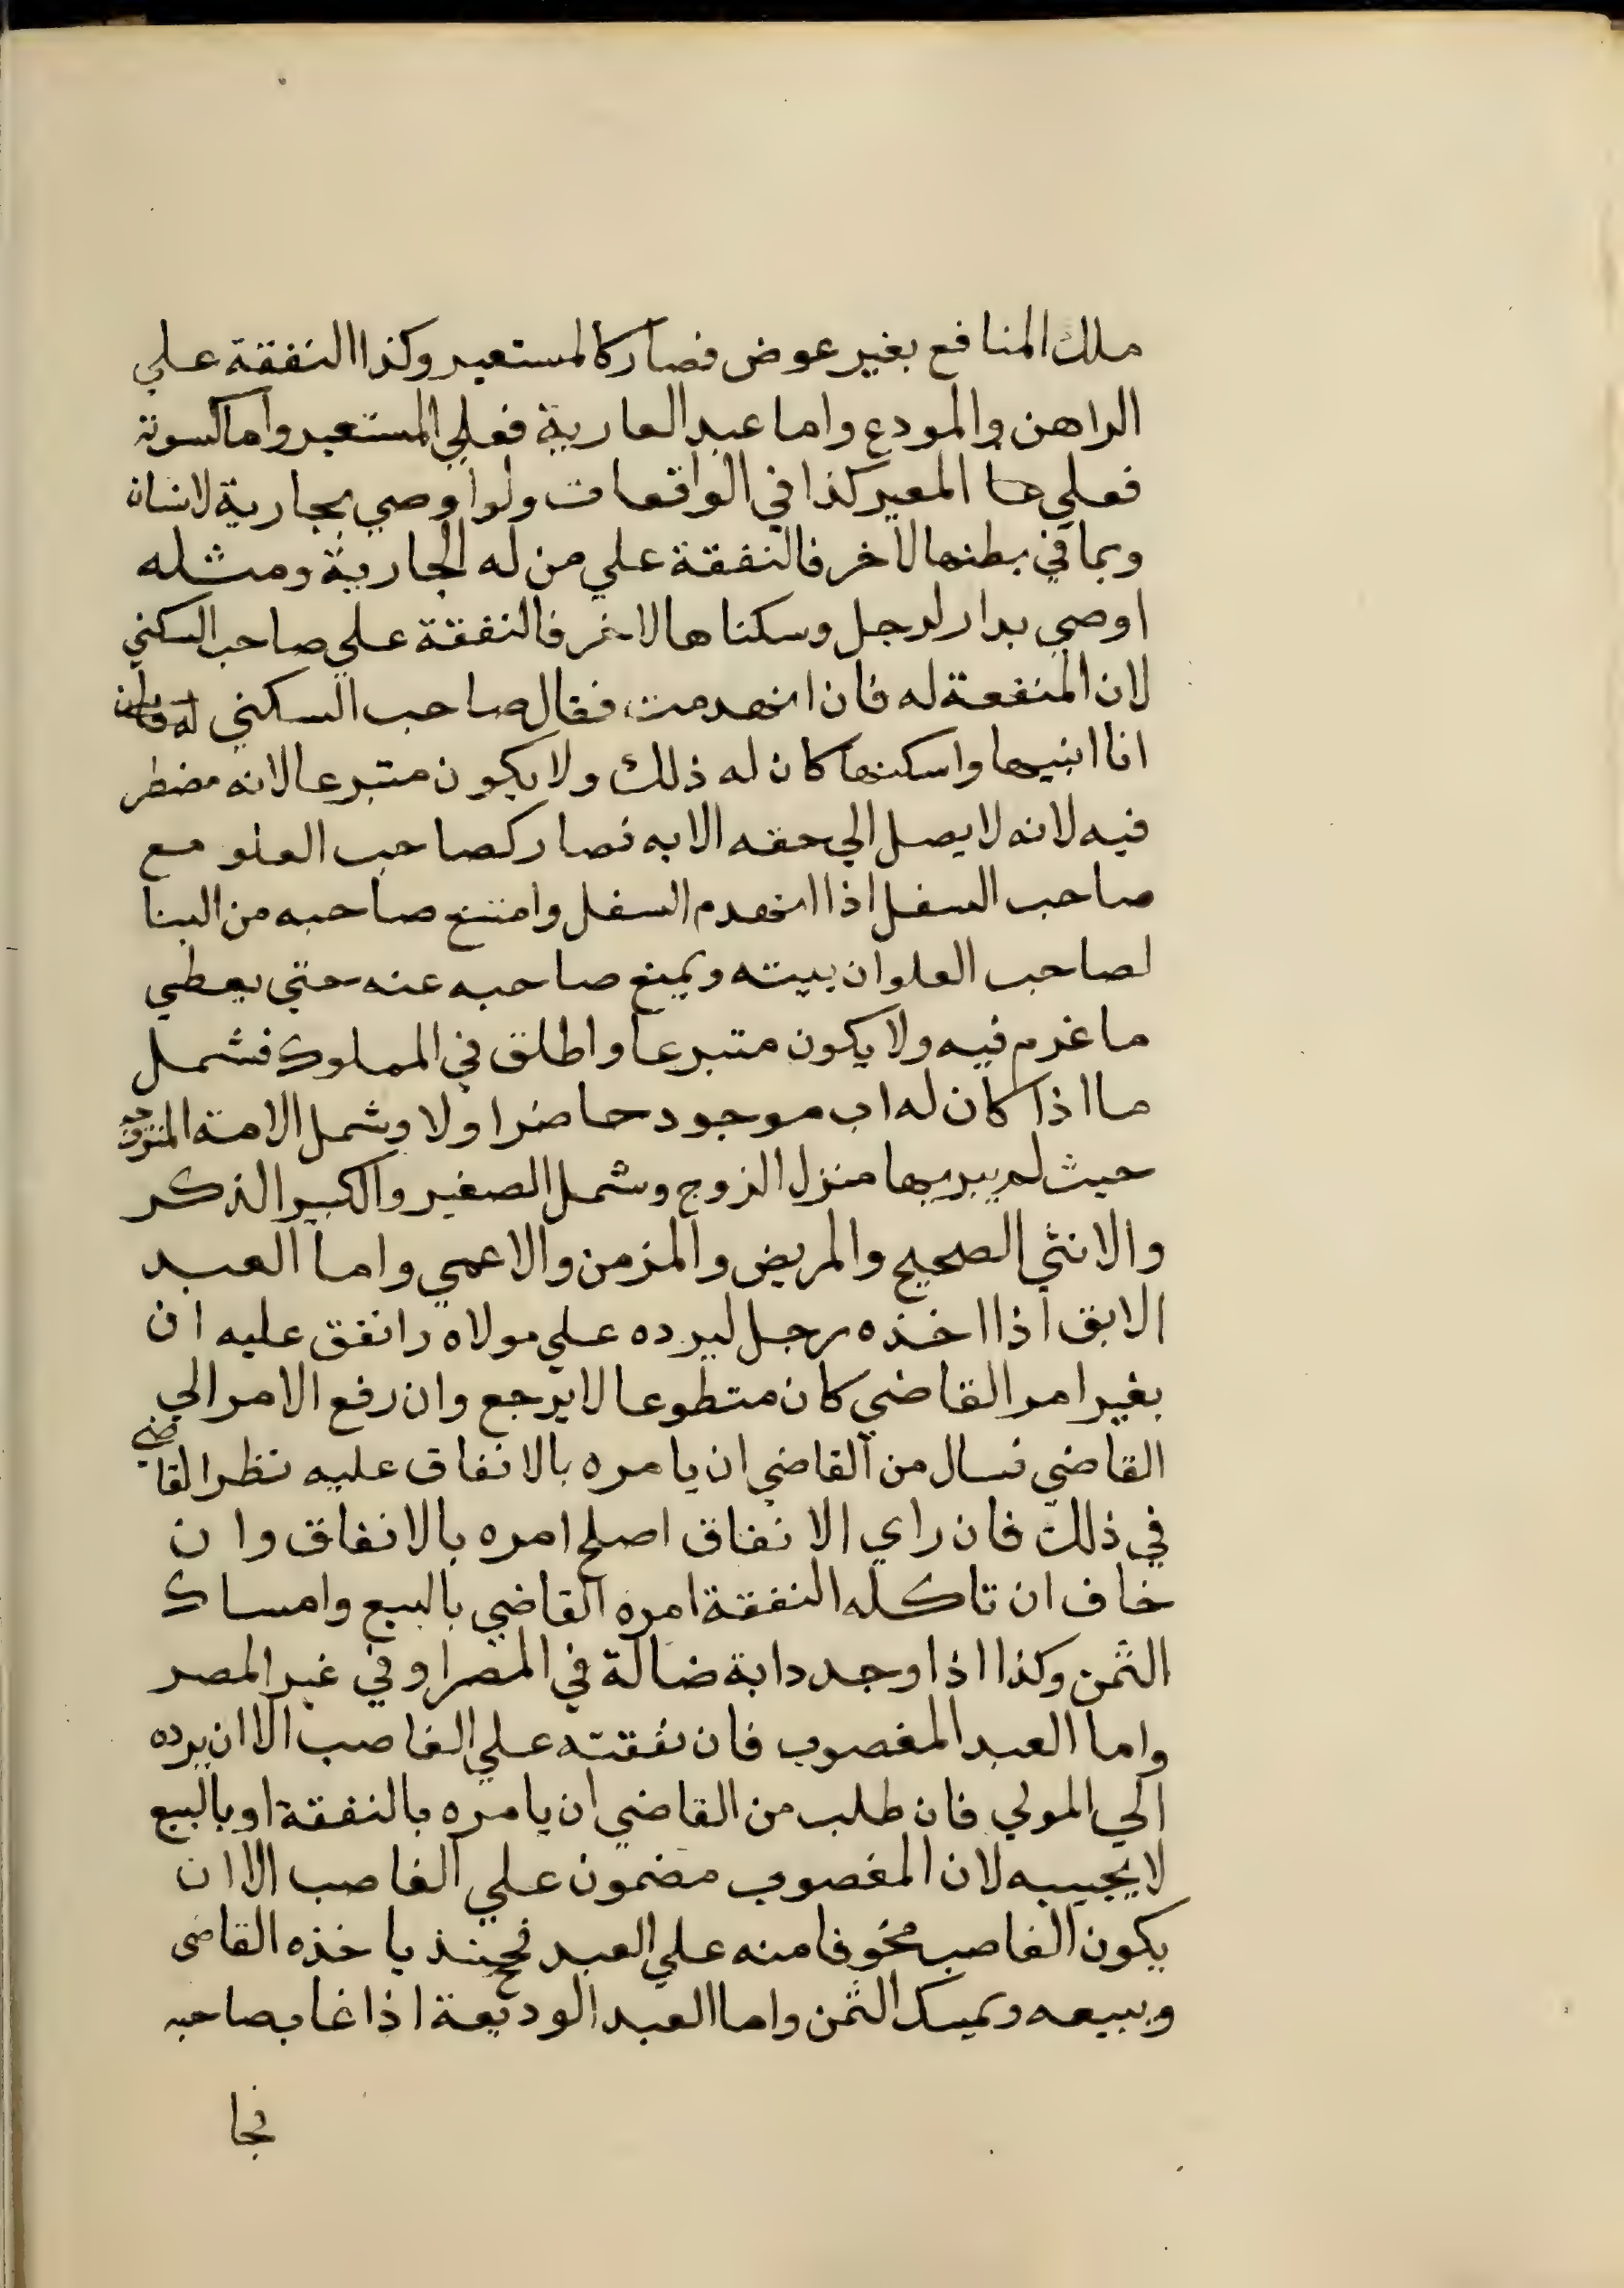 ملك المنافع بغير عوض فصار كالمستعير وكذا النفقة علي
الراهن والمودع واما عبد العارية فعلي المستعير واما كسوته
فعلي المعير كذا في الواقعات ولو اوصي بجارية لانسان
وبما في بطنها لاخر فالنفقة علي من له الجارية ومثله
اوصي بدار لرجل وسكناها لاخر فالنفقة علي صاحب السكني
لان المنفعة له فان انهدمت فقال صاحب السكني
انا ابنيها واسكنها كان له ذلك ولا يكون متبرعا لانه مضطر
فيه لانه لا يصل الي حقه الا به فصار كصاحب العلو مع
صاحب السفل اذا انهدم السفل وامتنع صاحبه من البنا
لصاحب العلو ان يبينه ويمنع صاحبه عنه حتي يعطي
ما غرم فيه ولا يكون متبرعا واطلق في المملوك فشمل
ما اذا كان له اب موجود حاضرا ولا وشمل الامة المتزوجة
حيث لم يبريها منزل الزوج وشمل الصغير والكبير الذكر
والانثي الصحيح والمريض والمزمن والاعمي واما العبد
الابق اذا اخذه رجل ليرده علي مولاه وانفق عليه ان
بغير امر القاضي كان متطوعا لا يرجع وان رفع الامر الي
القاضي فسال من القاضي ان يامره بالانفاق عليه نظر القاضي
في ذلك فان راي الانفاق اصلح امره بالانفاق وان
خاف ان تاكله النفقة امره القاضي بالبيع وامساك
الثمن وكذا اذا وجد دابة ضالة في المصر او في غير المصر
واما العبد المغصوب فان نفقته علي الغاصب الا ان يرده
الي المولي فان طلب من القاضي ان يامره بالنفقة او بالبيع
لا يجيبه لان المغصوب مضمون علي الغاصب الا ان
يكون الغاصب مخوفا منه علي العبد فحينئذ ياخذه القاضي
ويبيعه ويمسك الثمن واما العبد الوديعة اذا غاب صاحبه
فجا